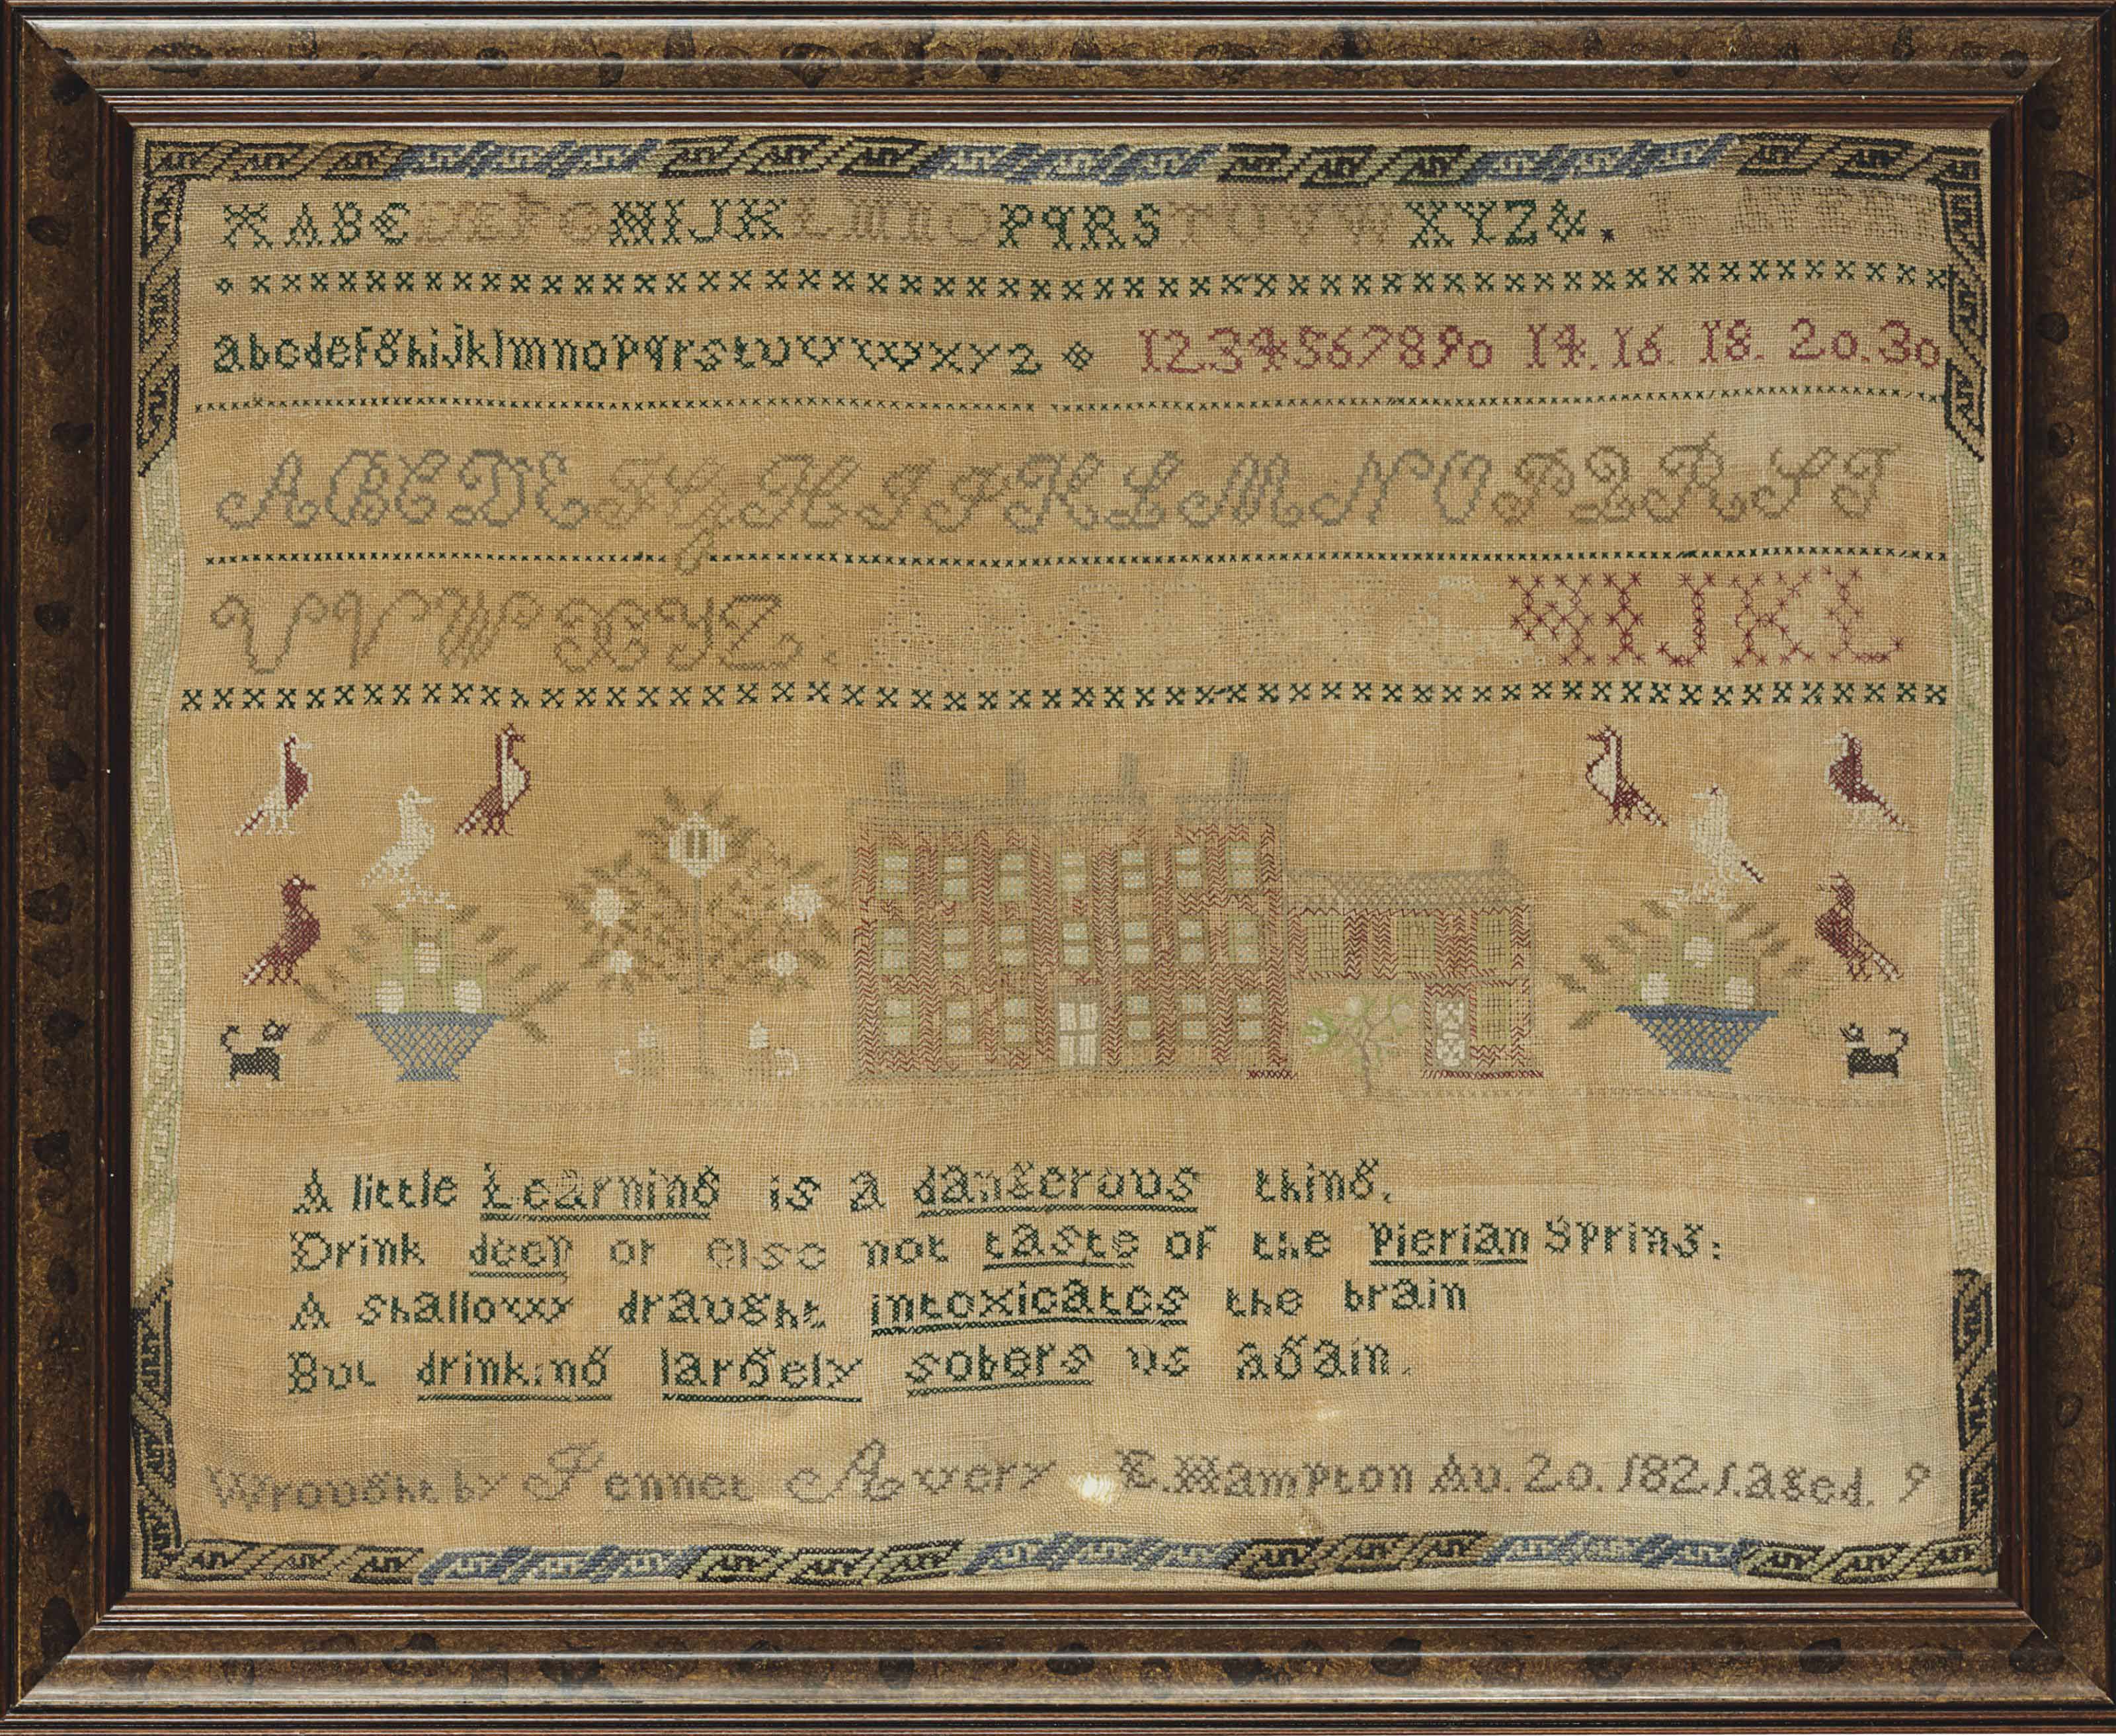 ABCDEFGHIJKLMNOPQRSTUVWXYZ&. J. AVERY
abcdefghijklmnopqrstuvwxyz 1234567890 14. 16. 18. 20. 30
ABCDEFGHIJKLMNOPQRST
UVWXYZ. ABCDEFGHIJKL
A little Learning is a dangerous thing,
Drink deep or else not taste of the Pierian Spring:
A shallow draught intoxicates the brain
But drinking largely sobers us again.
Wrought by Jennet Avery E. Hampton Au. 20. 1821. aged. 9